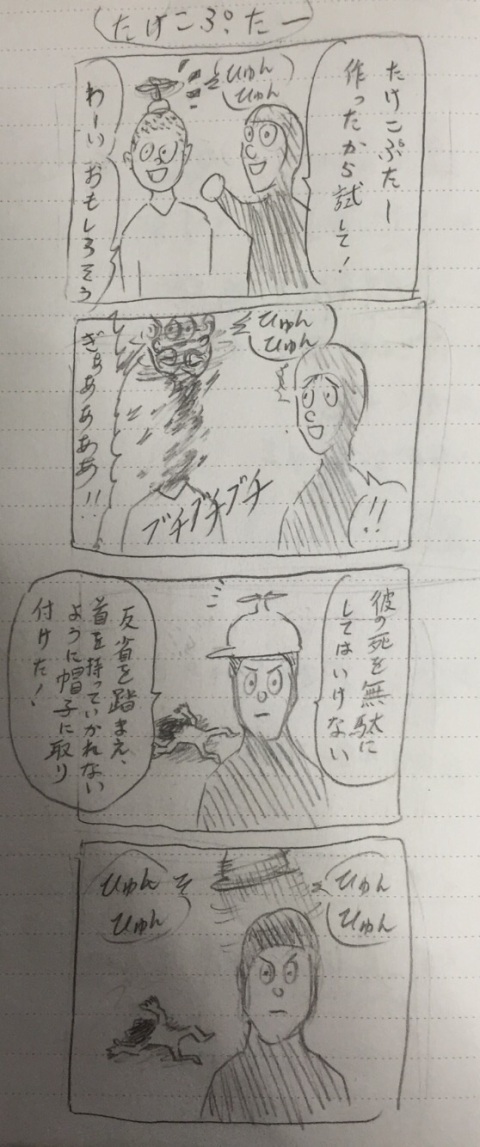 たけこぷたー
たけこぷたー
作ったから試して！
ひゅん
ひゅん
わーい おもしろそう
ひゅん
ひゅん
!!
ブチブチブチ
ぎぁぁぁぁぁ!!
彼の死を無駄に
してはいけない
反省を踏まえ、
首を持っていかれない
ように帽子に取り
付けた！
ひゅん
ひゅん
ひゅん
ひゅん